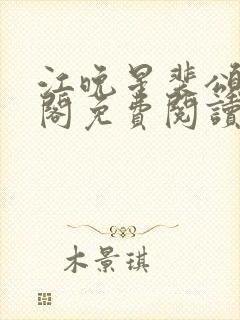 江晚星裴頌
閣免費閱讀
木景琪